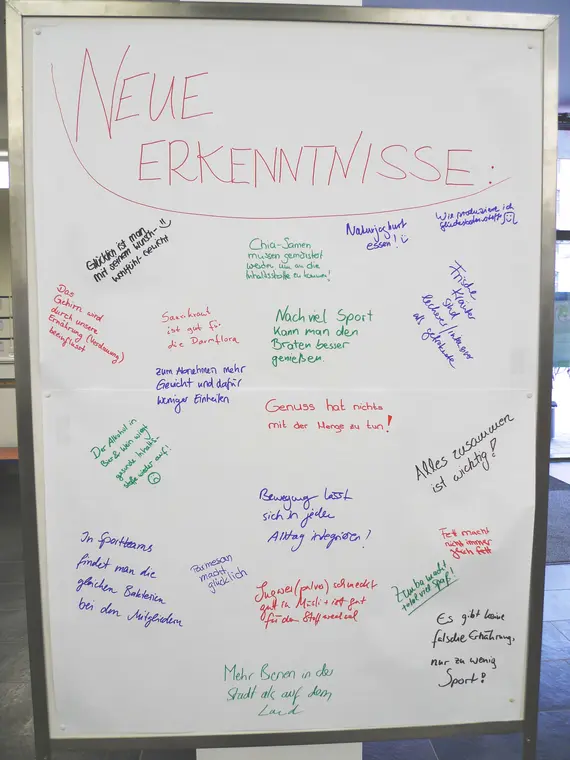 NEUE
ERKENNTNISSE:
Glücklich ist man
mit seinem Wunsch-
wohlfühl-Gewicht
Chia-Samen
müssen gemörstet
werden um an die
Inhaltsstoffe zu kommen!
Naturjoghurt
essen!
Wie produziere ich
Glückshormone
Das
Gehirn wird
durch unsere
Ernährung (Verdauung)
beeinflusst
Sauerkraut
ist gut für
die Darmflora
Nach viel Sport
kann man den
Braten besser
genießen.
Frische
Kräuter
sind
leckerer/intensiver
als getrocknete
zum Abnehmen mehr
Gewicht und dafür
weniger Einheiten
Genuss hat nichts
mit der Menge zu tun!
Der Alkohol in
Bier & Wein wiegt
gesunde Inhalts-
stoffe wieder auf!
Alles zusammen
ist wichtig!
Bewegung lässt
sich in jeden
Alltag integrieren!
In Sportteams
findet man die
gleichen Bakterien
bei den Mitgliedern
Parmesan
macht
glücklich
Ingwer(pulver) schmeckt
gut in Müsli + ist gut
für den Stoffwechsel
Fett macht
nicht immer
gleich fett
Zumba macht
total viel Spaß!
Es gibt keine
falsche Ernährung,
nur zu wenig
Sport!
Mehr Bienen in der
Stadt als auf dem
Land